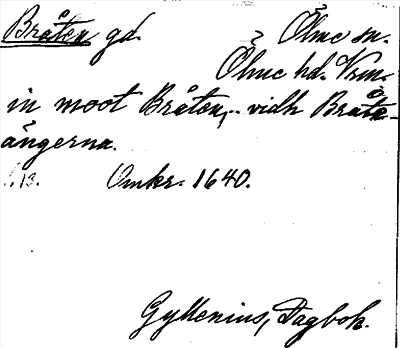 Bråten gd. Ölme sn.
Ölme hd. Vrm.
in moot Bråten, .. vidh Bråte-
ängerna.
s. 13. Omkr. 1640.
Gyllenius, Dagbok.